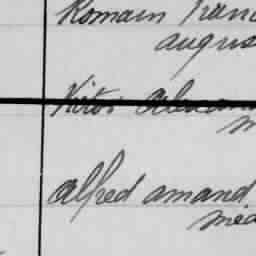 Romain Franc
augus
Victor Alexan
m
alfred amand
méd